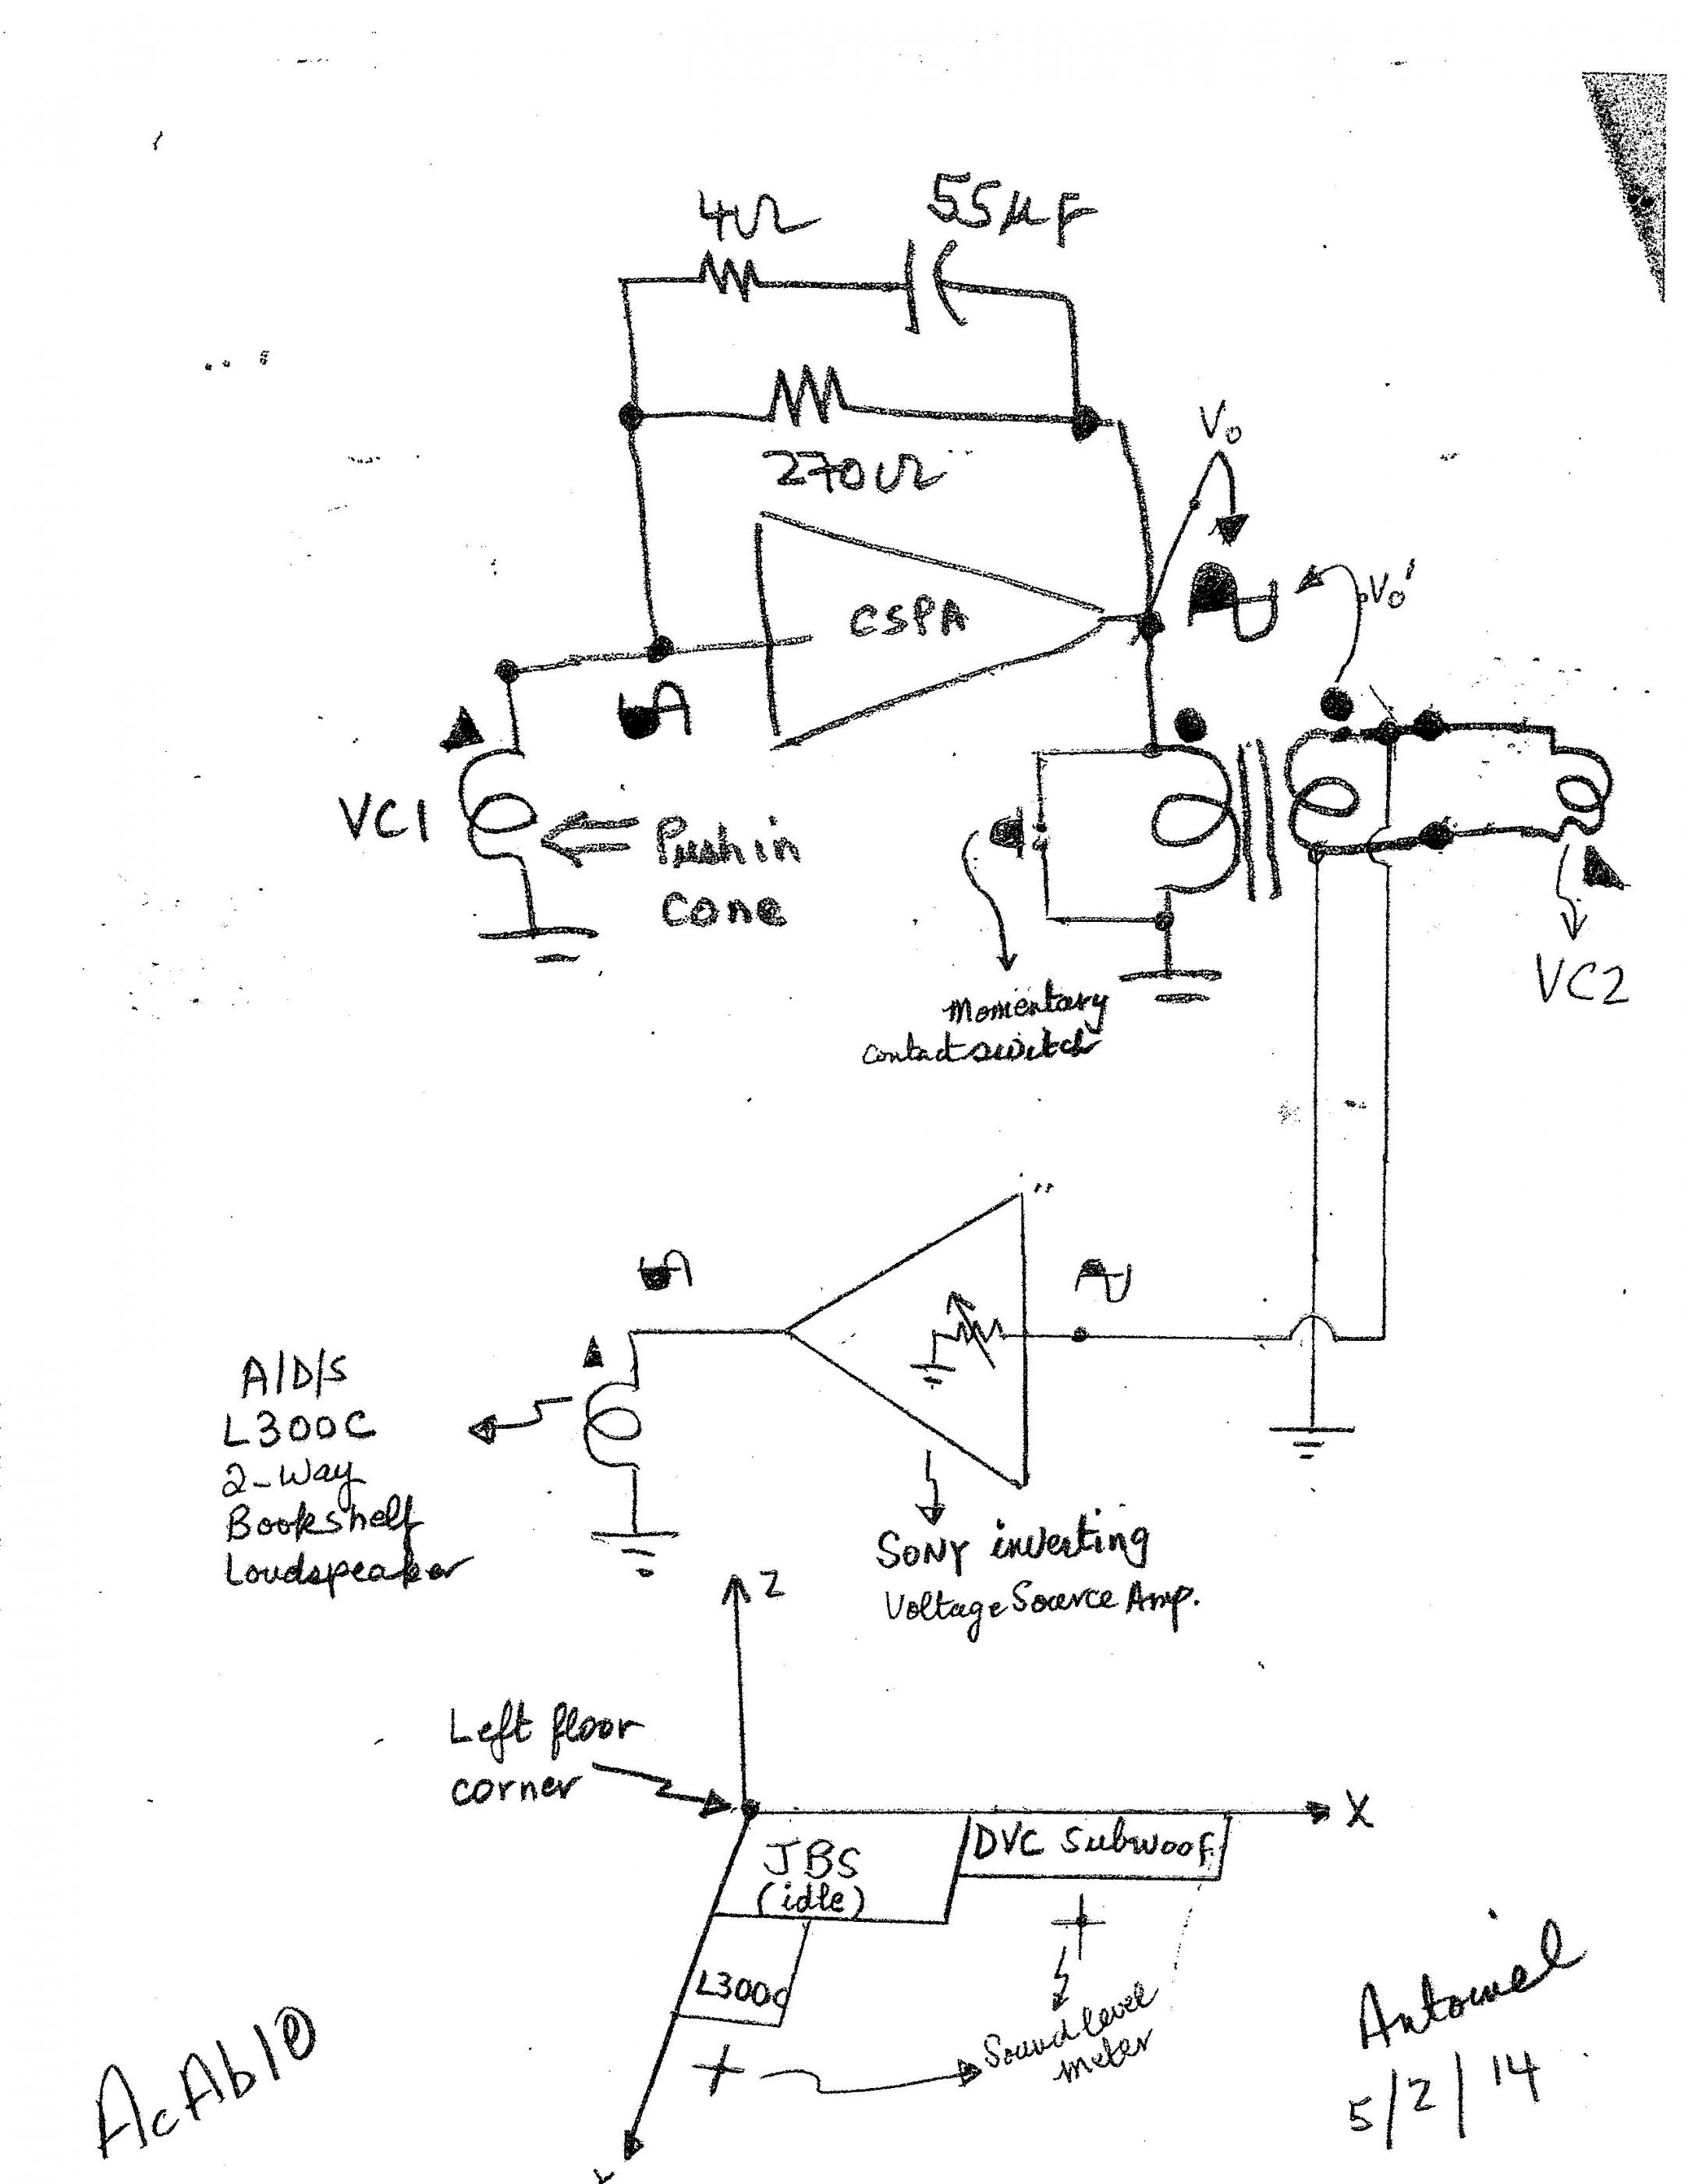 4Ω
55μF
270Ω
Vo
CSPA
Vo'
VC1
Push in
Cone
VC2
Momentary
contact switch
A/D/S
L300C
2-Way
Bookshelf
Loudspeaker
SONY inverting
Voltage Source Amp.
Z
Left floor
corner
X
JBS
(idle)
DVC Subwoof
L300C
Sound level
meter
5/2/14